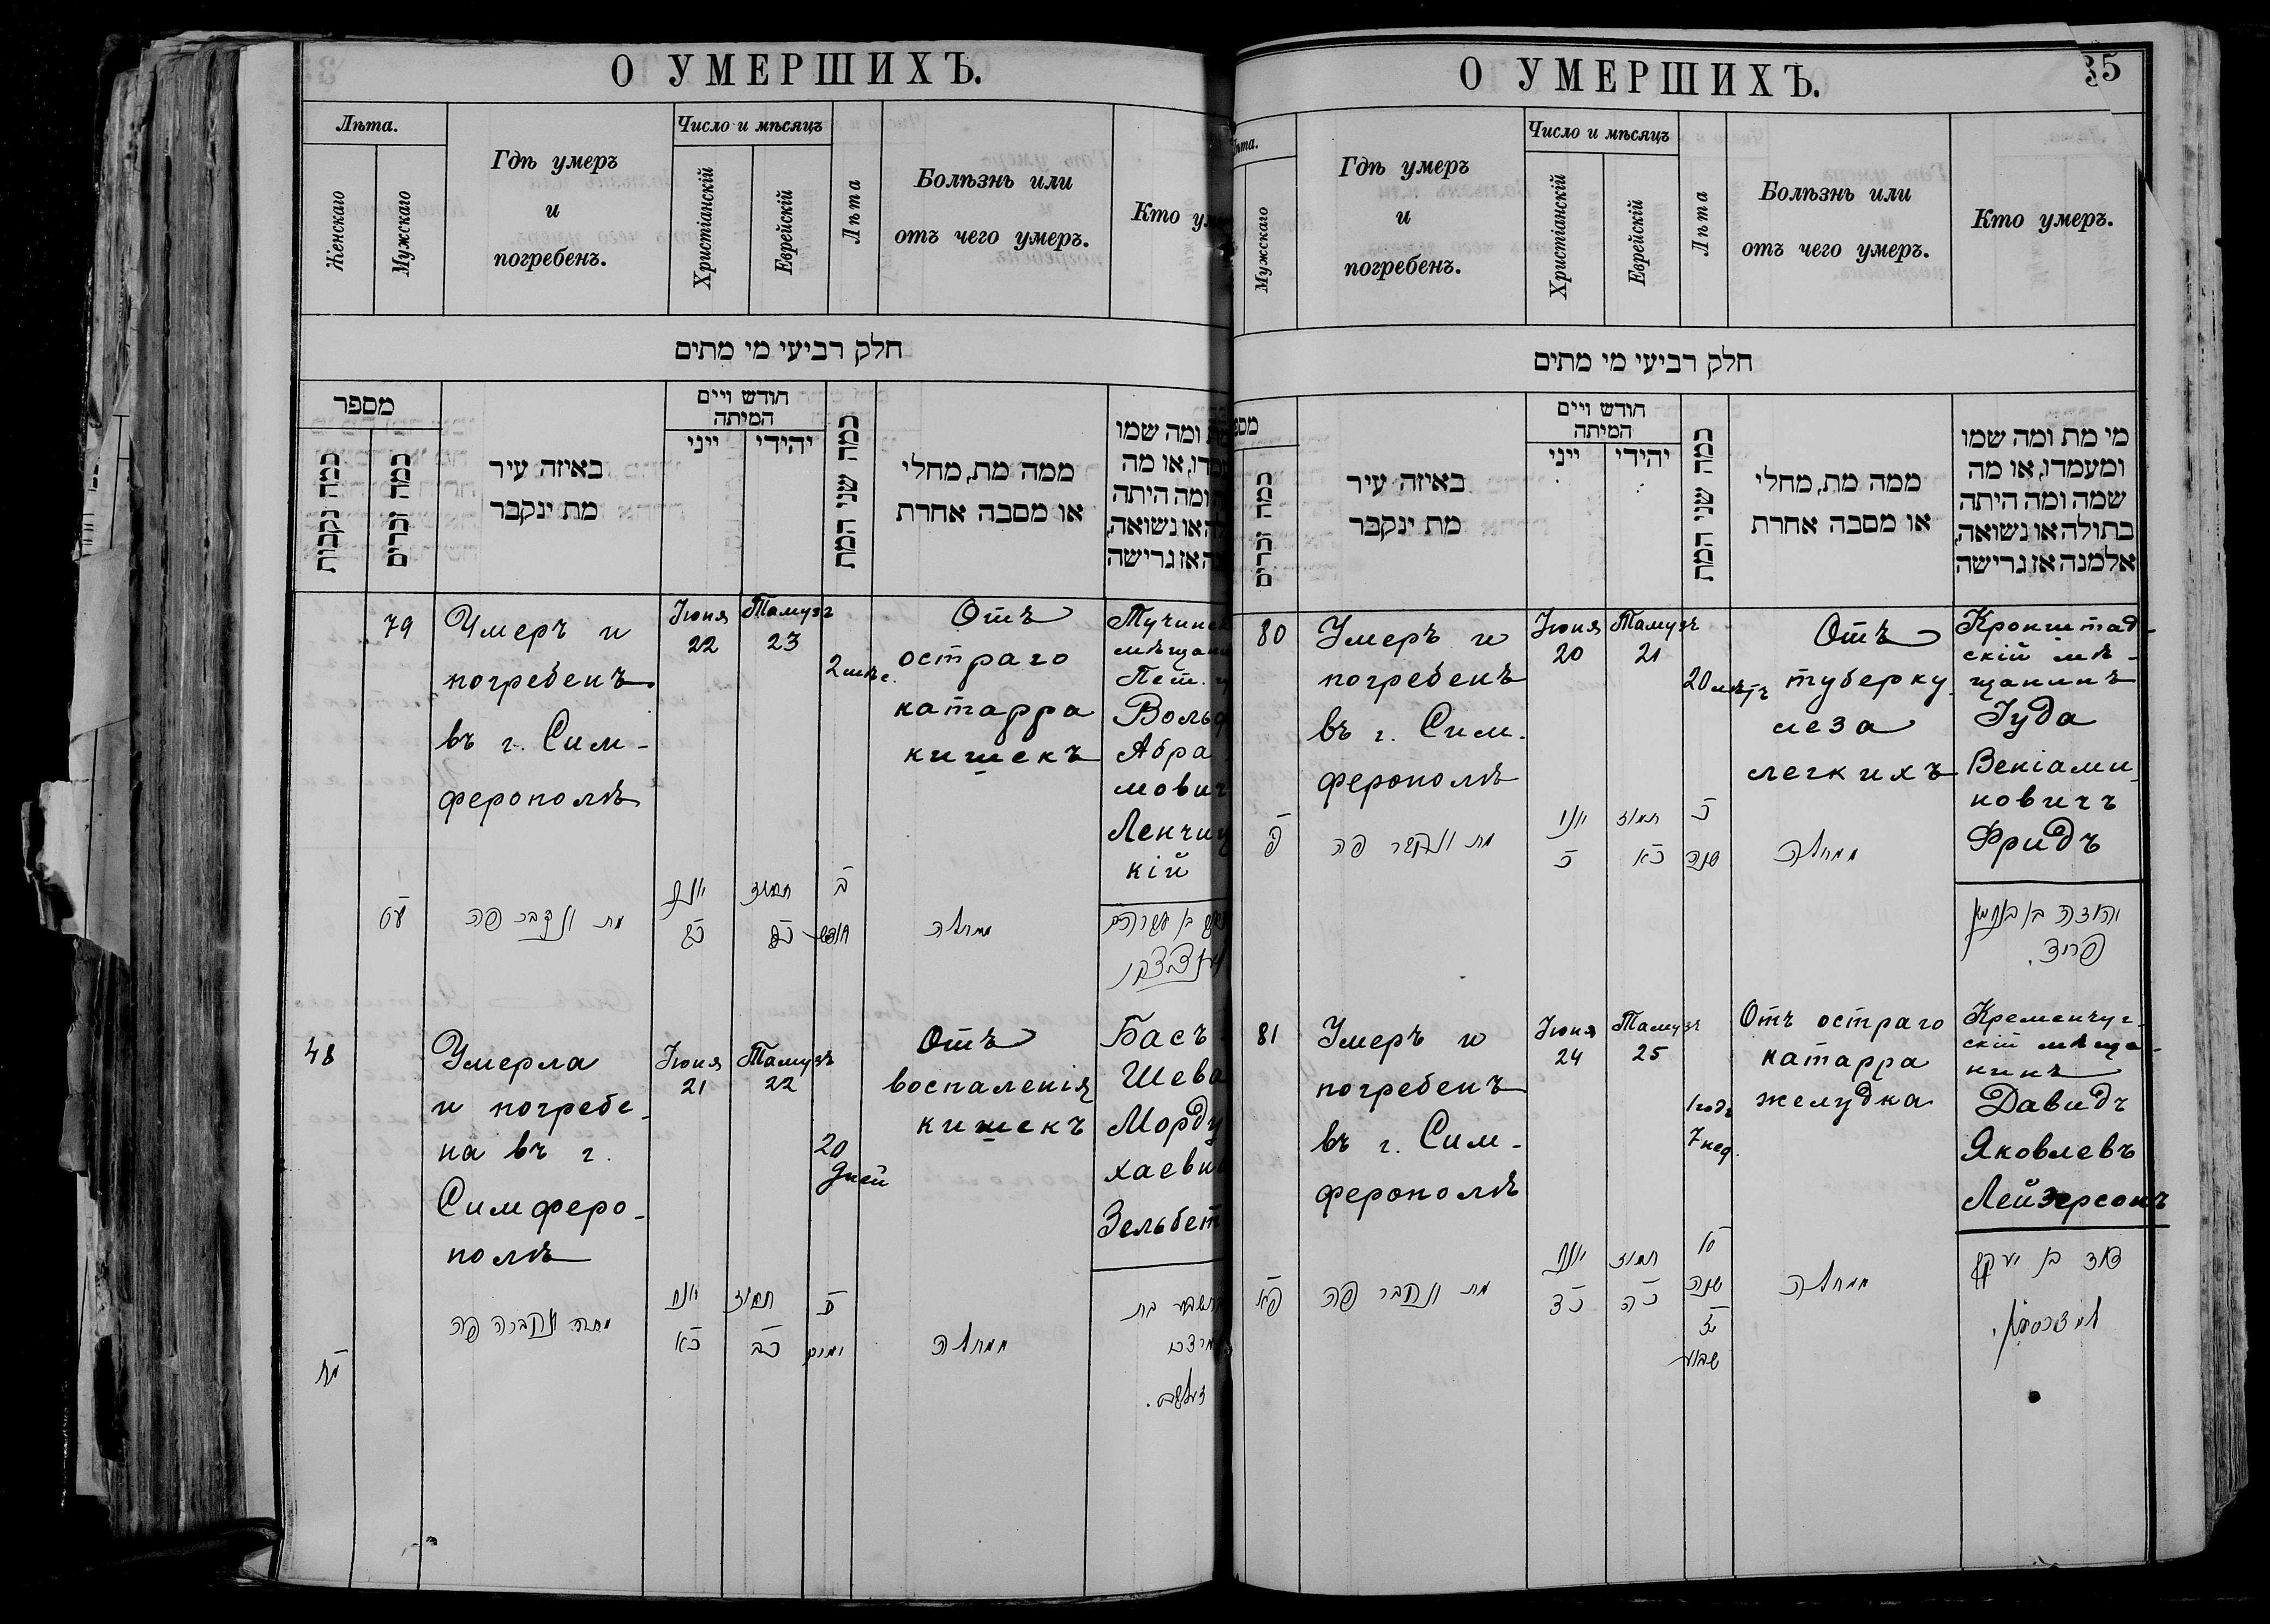 О УМЕРШИХЪ.
Лѣта.
Женскаго
Мужскаго
Гдѣ умеръ
и
погребенъ.
Число и мѣсяцъ
Христіанскій
Еврейскій
Лѣта
Болѣзнь или
отъ чего умеръ.
Кто
חלק רביעי מי מתים
מספר
כמה נקבות
כמה זכרים
באיזה עיר
מת ינקבר
חודש ויים
המיתה
ייני
יהידי
כמה שני המת
ממה מת, מחלי
או מסבה אחרת
ומה שמו
או מה
ומה היתה
או נשואה,
אז גרישה
79
Умеръ и
погребенъ
въ г. Сим-
ферополѣ
Іюня
22
Тамузъ
23
2 мѣс.
Отъ
остраго
катарра
кишекъ
Пет.
Абра
Ленчиц
кій
עט
מת ונקבר פה
תמוז
ב
ממחלה
בן
48
Умерла
и погребе-
на въ г.
Симферо-
полѣ
Іюня
21
Тамузъ
22
20
дней
Отъ
воспаленія
кишекъ
Басъ
Шева
Морду
хаеви
Зельбет
מח
מתה ונקברה פה
כא
תמוז
כב
ימים
ממחלה
בת
О УМЕРШИХЪ.
35
Мужскаго
Гдѣ умеръ
и
погребенъ.
Число и мѣсяцъ
Христіанскій
Еврейскій
Лѣта
Болѣзнь или
отъ чего умеръ.
Кто умеръ.
חלק רביעי מי מתים
כמה זכרים
באיזה עיר
מת ינקבר
חודש ויים
המיתה
ייני
יהידי
כמה שני המת
ממה מת, מחלי
או מסבה אחרת
מי מת ומה שמו
ומעמדו, או מה
שמה ומה היתה
בתולה או נשואה,
אלמנה אז גרישה
80
Умеръ и
погребенъ
въ г. Сим-
ферополѣ
Іюня
20
Тамузъ
21
20 лѣтъ
Отъ
туберку
леза
легкихъ
Кронштад-
скій мѣ-
щанинъ
Іуда
Веніами-
новичъ
Фридъ
פ
מת ונקבר פה
יוני
כ
תמוז
כא
כ
שנה
ממחלה
יהודה בן בנימין
פריד.
81
Умеръ и
погребенъ
въ г. Сим-
ферополѣ
Іюня
24
Тамузъ
25
1 годъ
7 нед.
Отъ остраго
катарра
желудка
Кременчуг-
скій мѣща-
нинъ
Давидъ
Яковлевъ
Лейзерсонъ
פא
מת ונקבר פה
יוני
כד
תמוז
כה
שנה
שבוע
ממחלה
דוד בן יעקב
לייזרסאן.